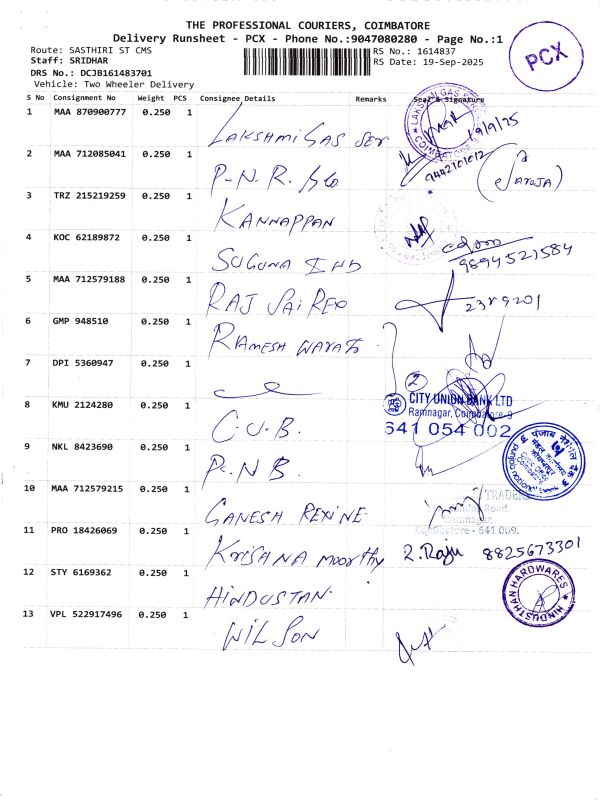 THE PROFESSIONAL COURIERS, COIMBATORE
Delivery Runsheet - PCX - Phone No.:9047080280 - Page No.:1
Route: SASTHIRI ST CMS
RS No.: 1614837
Staff: SRIDHAR
RS Date: 19-Sep-2025
DRS No.: DCJB161483701
Vehicle: Two Wheeler Delivery
PCX
S No Consignment No Weight PCS Consignee Details Remarks Seal & Signature
1 MAA 870900777 0.250 1 LAKSHMI GAS SER 19/9/25
9442101012
2 MAA 712085041 0.250 1 P.N.R. (SAROJA)
3 TRZ 215219259 0.250 1 KANNAPPAN
4 KOC 62189872 0.250 1 SUGUNA IND 9894521584
5 MAA 712579188 0.250 1 RAJ SAI REX 2389201
6 GMP 948510 0.250 1 RAMESH
7 DPI 5360947 0.250 1
2
CITY UNION BANK LTD
Ramnagar, Coimbatore-9
641 054 002
8 KMU 2124280 0.250 1 C.U.B.
9 NKL 8423690 0.250 1 P.N.B
10 MAA 712579215 0.250 1 GANESH REXINE
TRADERS
Road
Ramnagar
Coimbatore - 641 009.
11 PRO 18426069 0.250 1 KRISHNA MOORTHY R. Raju 8825673301
12 STY 6169362 0.250 1 HINDUSTAN
HINDUSTHAN HARDWARES
13 VPL 522917496 0.250 1 WILSON